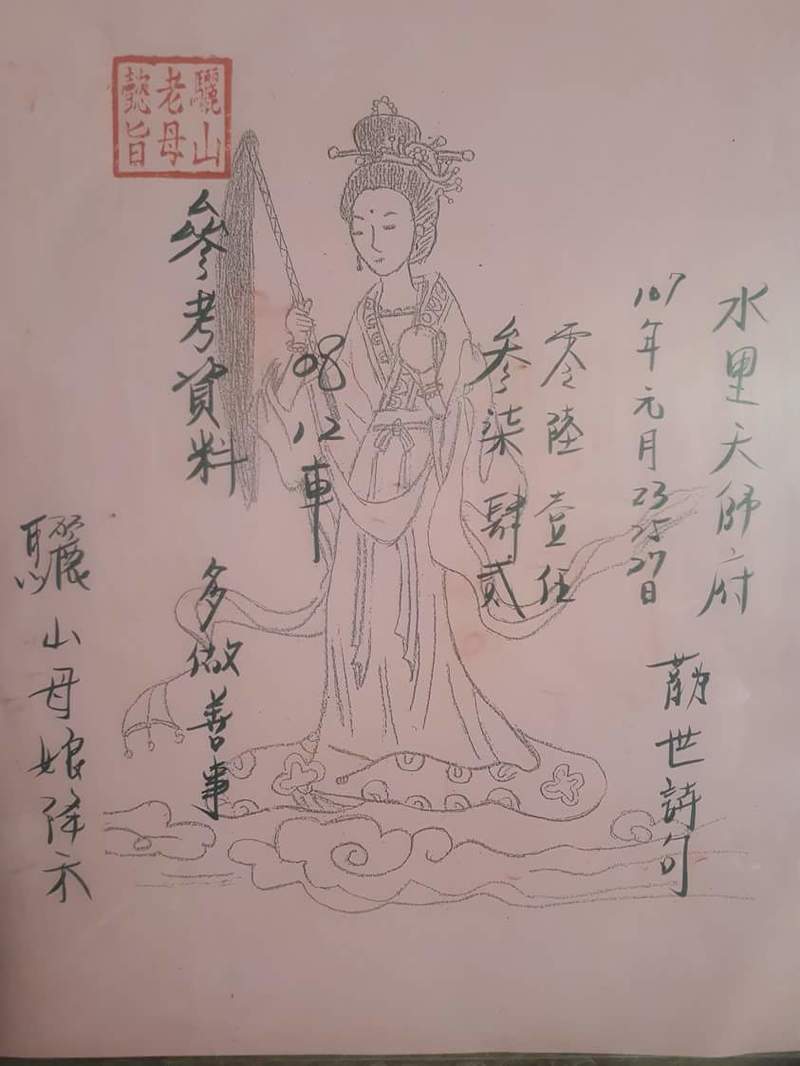 水里天師府
107年元月23 25 27日
勸世詩句
零陸壹伍
參柒肆貳
08 12車
參考資料
多做善事
驪山老母懿旨
驪山母娘降示